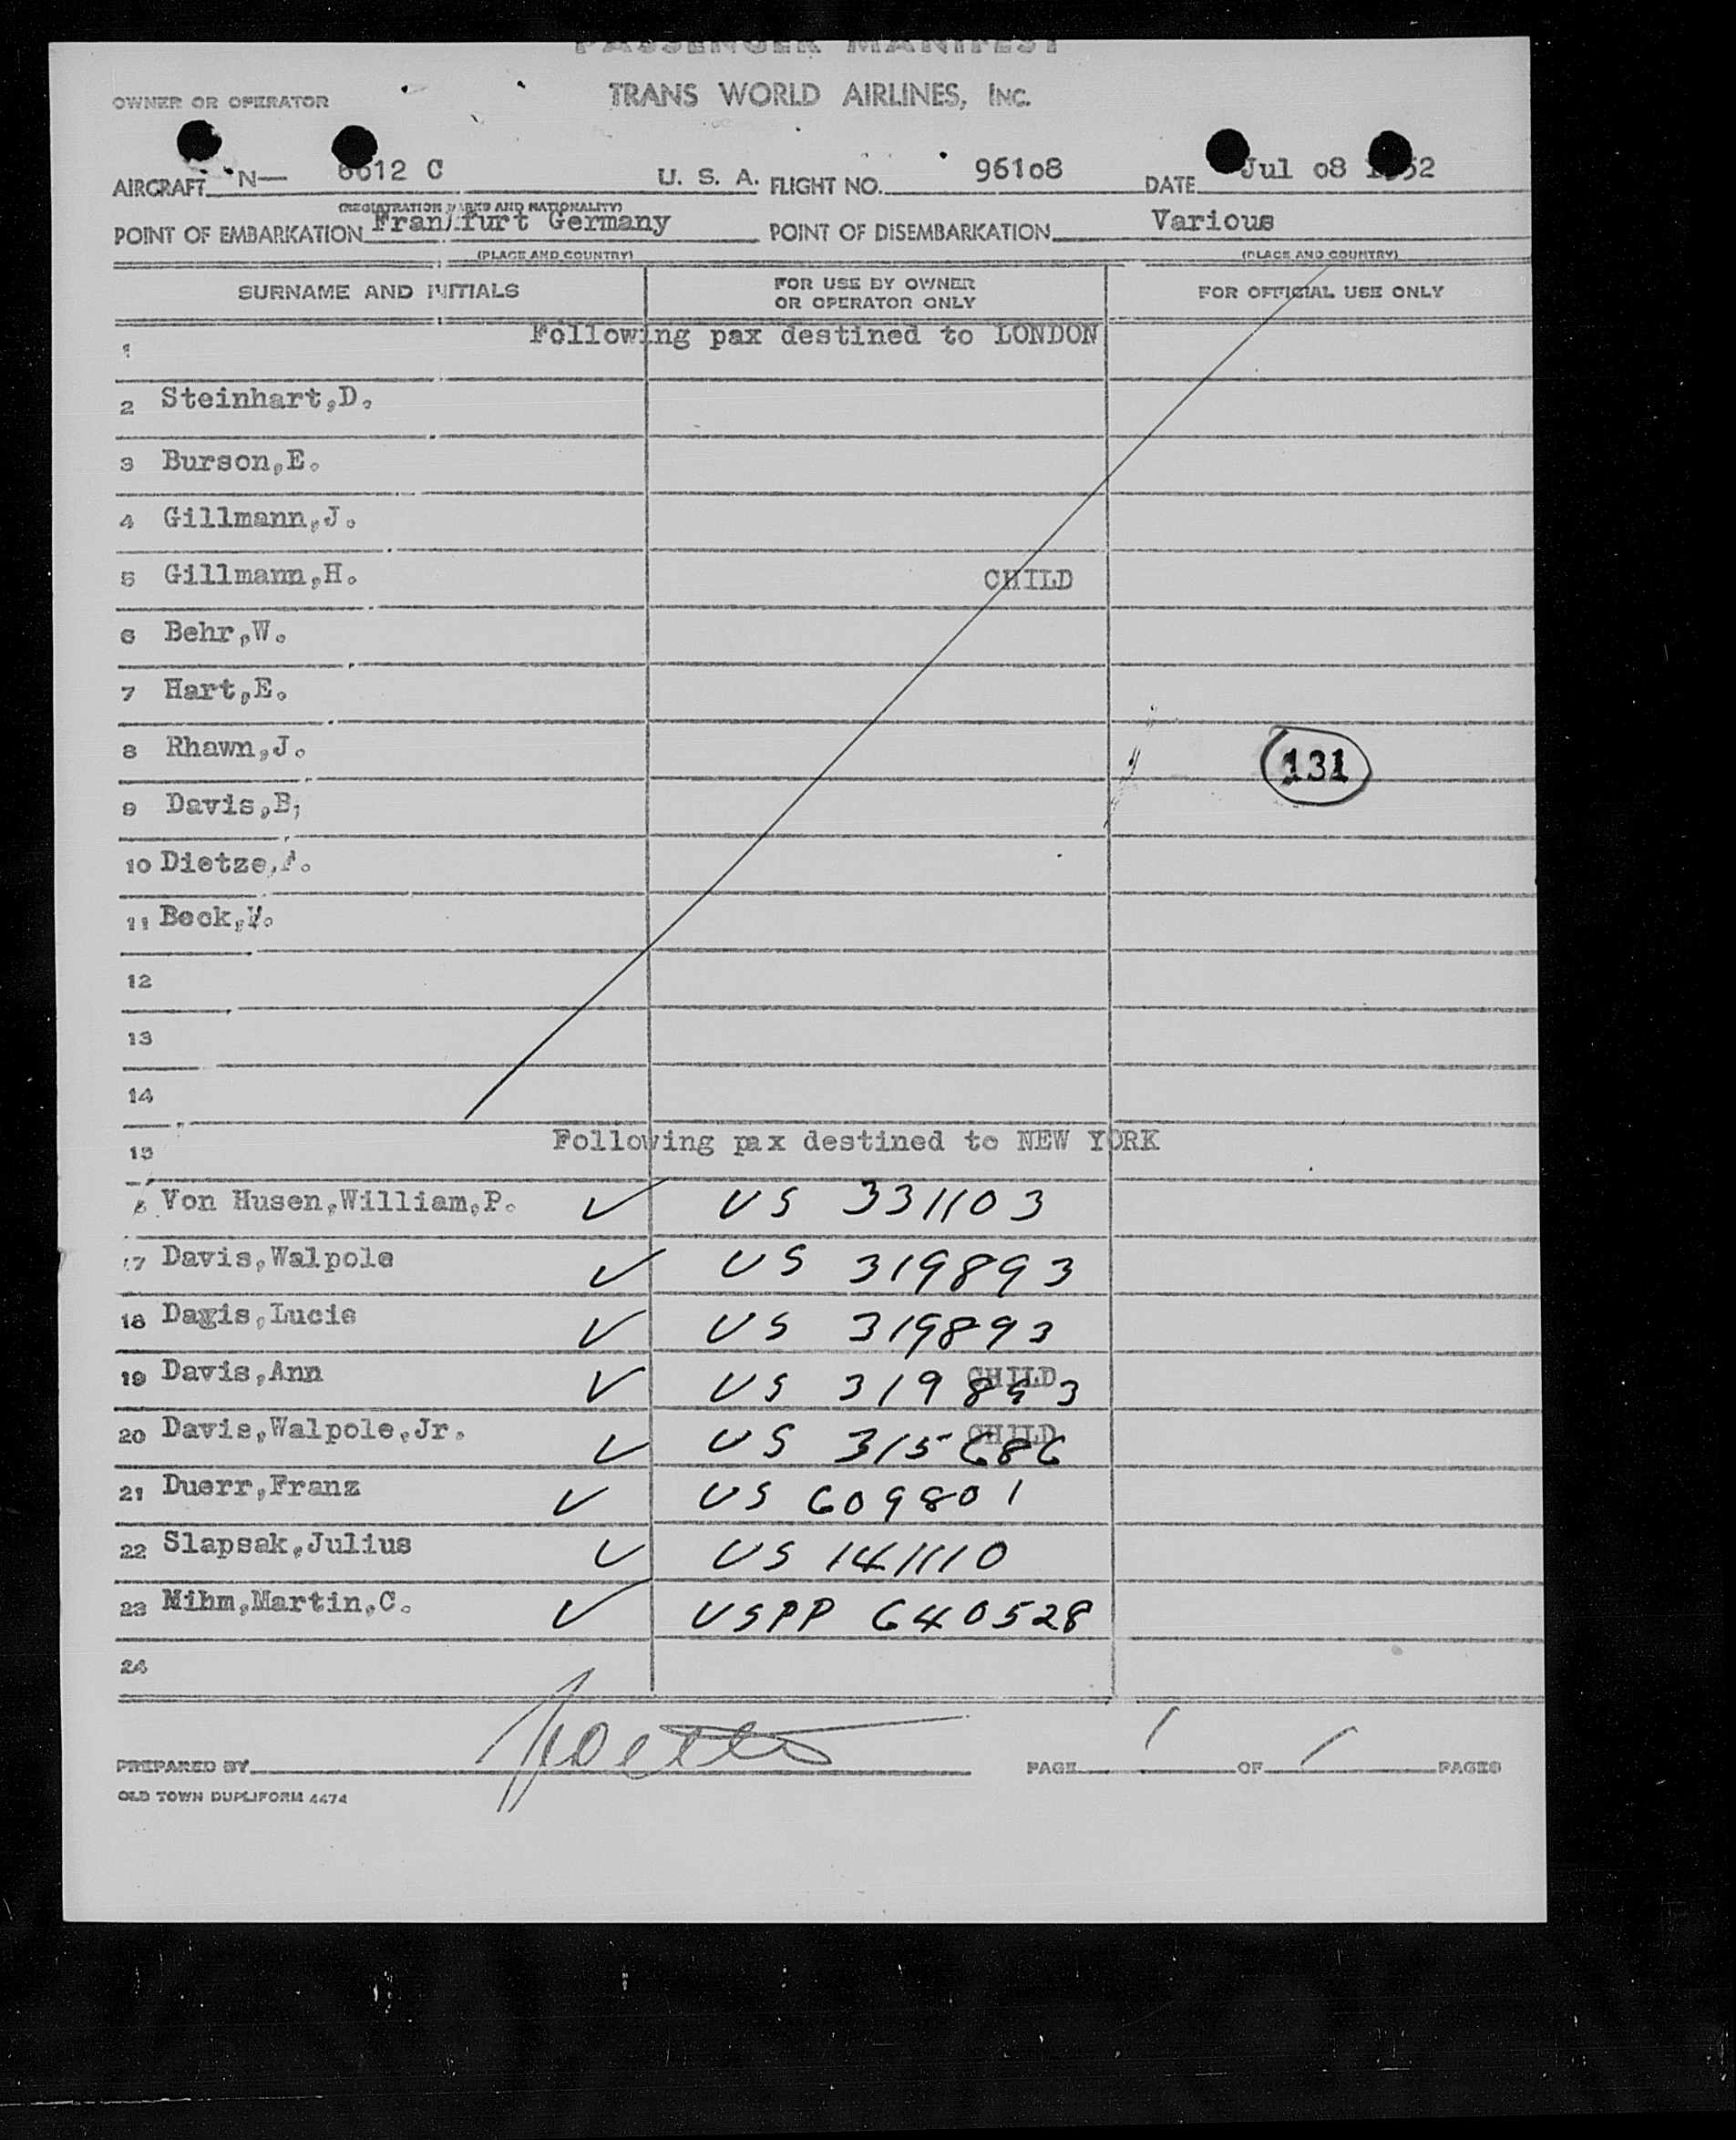 PASSENGER MANIFEST
OWNER OR OPERATOR TRANS WORLD AIRLINES, INC.
AIRCRAFT N— 6612 C U. S. A. FLIGHT NO. 96108 DATE Jul 08 1952
(REGISTRATION MARKS AND NATIONALITY)
POINT OF EMBARKATION Frankfurt Germany POINT OF DISEMBARKATION Various
(PLACE AND COUNTRY) (PLACE AND COUNTRY)
SURNAME AND INITIALS FOR USE BY OWNER OR OPERATOR ONLY FOR OFFICIAL USE ONLY
1 Following pax destined to LONDON
2 Steinhart,D.
3 Burson,E.
4 Gillmann,J.
5 Gillmann,H. CHILD
6 Behr,W.
7 Hart,E.
8 Rhawn,J. 131
9 Davis,B.
10 Dietze,
11 Beck,
12
13
14
15 Following pax destined to NEW YORK
6 Von Husen,William,P. ✓ US 331103
17 Davis,Walpole ✓ US 319893
18 Davis,Lucie ✓ US 319893
19 Davis,Ann ✓ US 319893 CHILD
20 Davis,Walpole,Jr. ✓ US 315686 CHILD
21 Duerr,Franz ✓ US 609801
22 Slapsak,Julius ✓ US 141110
23 Mihm,Martin,C. ✓ USPP 640528
24
PREPARED BY PAGE 1 OF 1 PAGES
OLD TOWN DUPLIFORM 4474